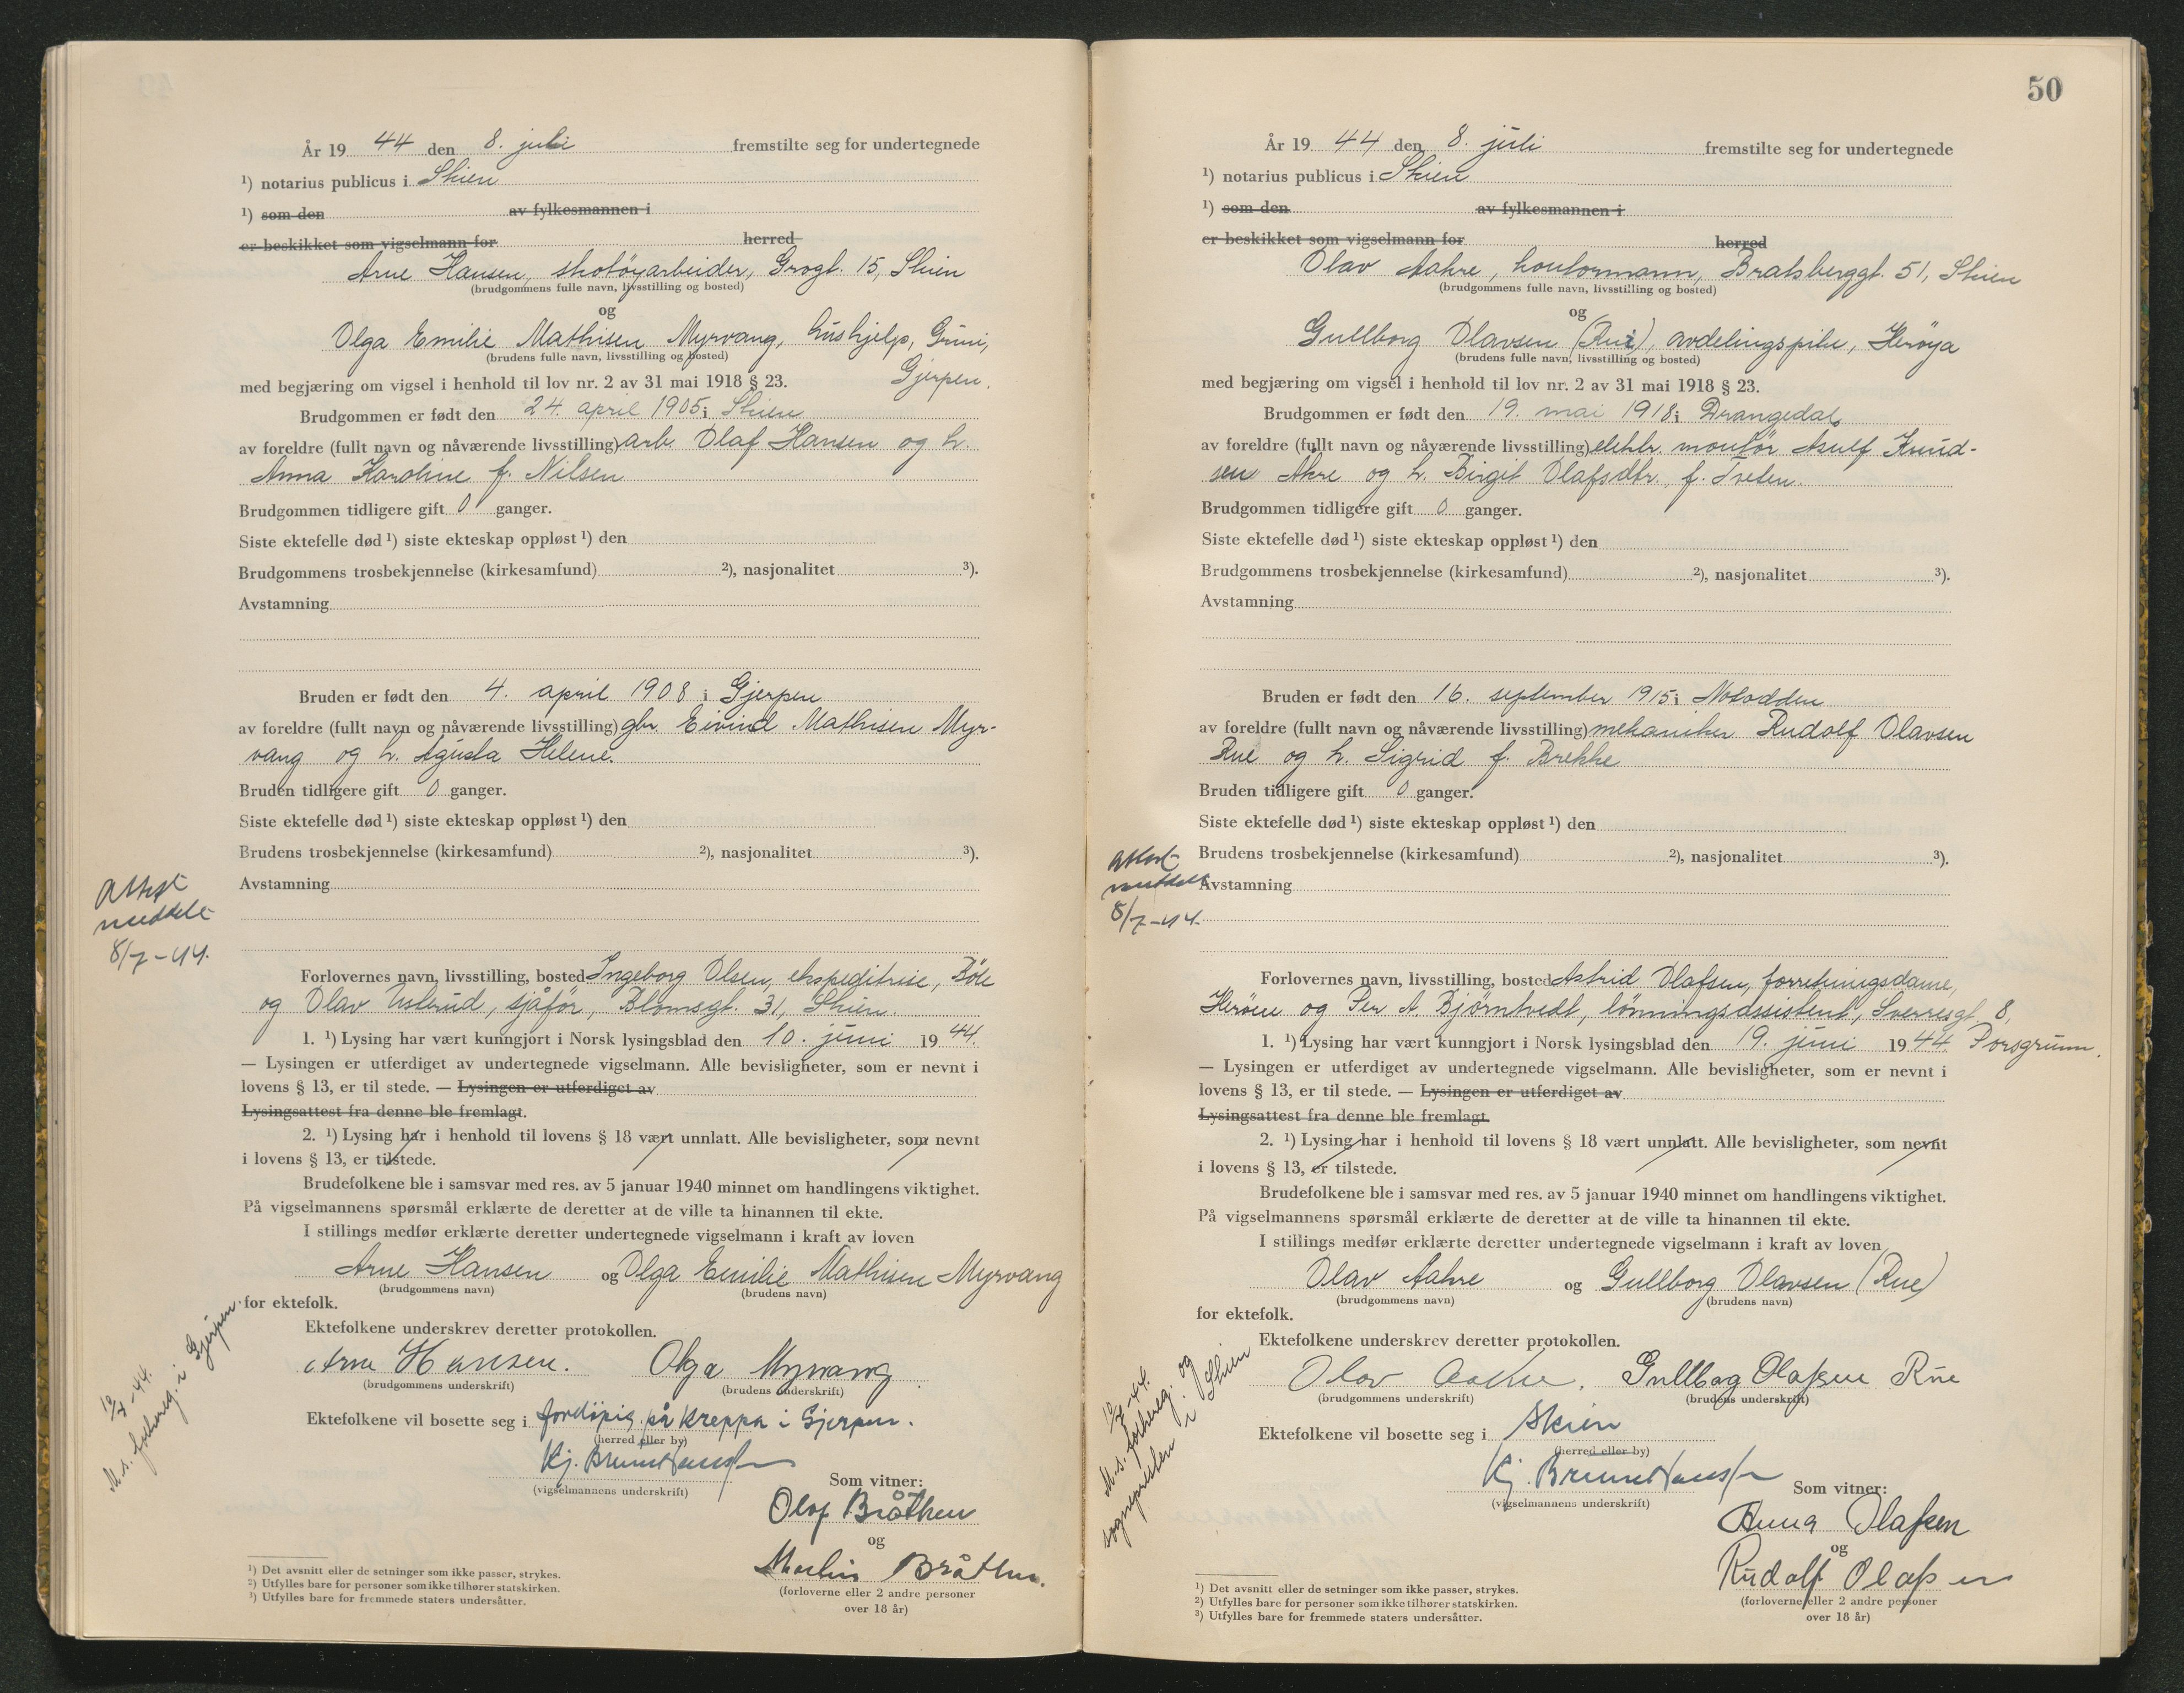 År 19 44 den 8. juli fremstilte seg for undertegnede
¹) notarius publicus i Skien
¹) som den av fylkesmannen i
er beskikket som vigselmann for herred
Arne Hansen, skotöyarbeider, Grogt. 15, Skien
(brudgommens fulle navn, livsstilling og bosted)
og
Olga Emilie Mathisen Myrvang, hushjelp, Grini,
(brudens fulle navn, livsstilling og bosted)
Gjerpen.
med begjæring om vigsel i henhold til lov nr. 2 av 31 mai 1918 § 23.
Brudgommen er født den 24. april 1905 i Skien
av foreldre (fullt navn og nåværende livsstilling) arb. Olaf Hansen og h.
Anna Karoline f. Nilsen
Brudgommen tidligere gift 0 ganger.
Siste ektefelle død ¹) siste ekteskap oppløst ¹) den
Brudgommens trosbekjennelse (kirkesamfund) ²), nasjonalitet ³).
Avstamning
Bruden er født den 4. april 1908 i Gjerpen
av foreldre (fullt navn og nåværende livsstilling) gbr. Eivind Mathisen Myr-
vang og h. Agusta Helene.
Bruden tidligere gift 0 ganger.
Siste ektefelle død ¹) siste ekteskap oppløst ¹) den
Brudens trosbekjennelse (kirkesamfund) ²), nasjonalitet ³).
Avstamning
Attest
meddelt
8/7-44.
Forlovernes navn, livsstilling, bosted Ingeborg Olsen, ekspeditrise, Böle
og Olav Usterud, sjåför, Blomsgt. 31, Skien.
1. ¹) Lysing har vært kunngjort i Norsk lysingsblad den 10. juni 19 44.
— Lysingen er utferdiget av undertegnede vigselmann. Alle bevisligheter, som er nevnt i
lovens § 13, er til stede. — Lysingen er utferdiget av
Lysingsattest fra denne ble fremlagt.
2. ¹) Lysing har i henhold til lovens § 18 vært unnlatt. Alle bevisligheter, som nevnt
i lovens § 13, er tilstede.
Brudefolkene ble i samsvar med res. av 5 januar 1940 minnet om handlingens viktighet.
På vigselmannens spørsmål erklærte de deretter at de ville ta hinannen til ekte.
I stillings medfør erklærte deretter undertegnede vigselmann i kraft av loven
Arne Hansen og Olga Emilie Mathisen Myrvang
(brudgommens navn) (brudens navn)
for ektefolk.
Ektefolkene underskrev deretter protokollen.
Arne Hansen. Olga Myrvang
(brudgommens underskrift) (brudens underskrift)
Ektefolkene vil bosette seg i foröpig på Kreppa i Gjerpen.
(herred eller by)
Kj. Brunn Hansen
(vigselmannens underskrift)
12/7-44.
M.s. folkereg. i Gjerpen
Som vitner:
Olaf Bråthen
og
Bråthen.
(forloverne eller 2 andre personer
over 18 år)
¹) Det avsnitt eller de setninger som ikke passer, strykes.
²) Utfylles bare for personer som ikke tilhører statskirken.
³) Utfylles bare for fremmede staters undersåtter.
50
År 19 44 den 8. juli fremstilte seg for undertegnede
¹) notarius publicus i Skien
¹) som den av fylkesmannen i
er beskikket som vigselmann for herred
Olav Aakre, kontormann, Bratsberggt. 51, Skien
(brudgommens fulle navn, livsstilling og bosted)
og
Gullborg Olavsen (Rue), avdelingspike, Heröya
(brudens fulle navn, livsstilling og bosted)
med begjæring om vigsel i henhold til lov nr. 2 av 31 mai 1918 § 23.
Brudgommen er født den 19. mai 1918 i Drangedal
av foreldre (fullt navn og nåværende livsstilling) elektr. montör Asulf Knud-
sen Åkre og h. Birgit Olafsdtr. f. Tveten.
Brudgommen tidligere gift 0 ganger.
Siste ektefelle død ¹) siste ekteskap oppløst ¹) den
Brudgommens trosbekjennelse (kirkesamfund) ²), nasjonalitet ³).
Avstamning
Bruden er født den 16. september 1915 i Notodden
av foreldre (fullt navn og nåværende livsstilling) mekaniker Rudolf Olavsen
Rue og h. Sigrid f. Brekke
Bruden tidligere gift 0 ganger.
Siste ektefelle død ¹) siste ekteskap oppløst ¹) den
Brudens trosbekjennelse (kirkesamfund) ²), nasjonalitet ³).
Avstamning
Attest
meddelt
8/7-44.
Forlovernes navn, livsstilling, bosted Astrid Olafsen, forretningsdame,
Heröen og Per A. Björntvedt, lönningsassistent, Sverresgt. 8,
Porsgrunn.
1. ¹) Lysing har vært kunngjort i Norsk lysingsblad den 19. juni 19 44.
— Lysingen er utferdiget av undertegnede vigselmann. Alle bevisligheter, som er nevnt i
lovens § 13, er til stede. — Lysingen er utferdiget av
Lysingsattest fra denne ble fremlagt.
2. ¹) Lysing har i henhold til lovens § 18 vært unnlatt. Alle bevisligheter, som nevnt
i lovens § 13, er tilstede.
Brudefolkene ble i samsvar med res. av 5 januar 1940 minnet om handlingens viktighet.
På vigselmannens spørsmål erklærte de deretter at de ville ta hinannen til ekte.
I stillings medfør erklærte deretter undertegnede vigselmann i kraft av loven
Olav Aakre og Gullborg Olavsen (Rue)
(brudgommens navn) (brudens navn)
for ektefolk.
Ektefolkene underskrev deretter protokollen.
Olav Aakre. Gullbog Olafsen Rue
(brudgommens underskrift) (brudens underskrift)
Ektefolkene vil bosette seg i Skien
(herred eller by)
Kj. Brunn Hansen
(vigselmannens underskrift)
12/7-44.
M.s. folkereg. og
sognepresten i Skien
Som vitner:
Anna Olafsen
og
Rudolf Olafsen
(forloverne eller 2 andre personer
over 18 år)
¹) Det avsnitt eller de setninger som ikke passer, strykes.
²) Utfylles bare for personer som ikke tilhører statskirken.
³) Utfylles bare for fremmede staters undersåtter.